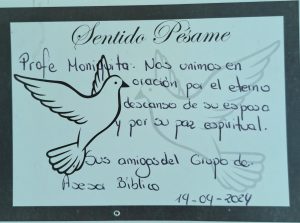 Sentido Pésame
Profe Moniquita: Nos unimos en
oración por el eterno
descanso de su esposo
y por su paz espiritual.
Sus amigos del Grupo de
Asesor Bíblico
19-04-2024